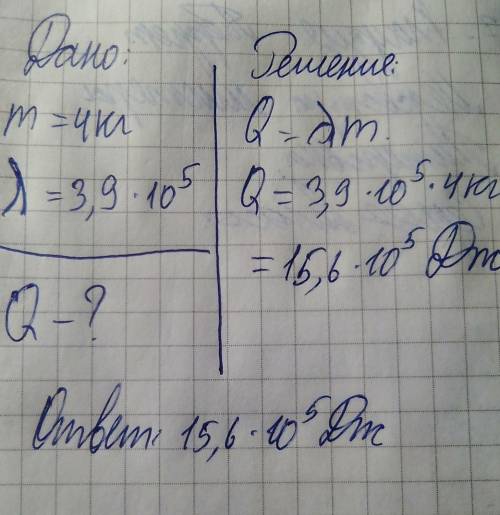 Дано:
m = 4кг
λ = 3,9 · 10⁵
Q - ?
Решение:
Q = λm.
Q = 3,9 · 10⁵ · 4кг
= 15,6 · 10⁵ Дж
Ответ: 15,6 · 10⁵ Дж